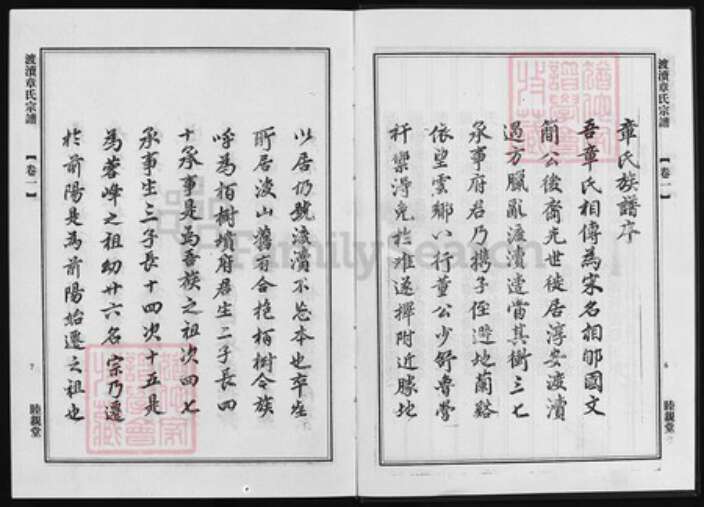 渡瀆章氏宗譜
【卷一】
6
睦親堂
章氏族譜序
吾章氏相傳為宋名相郇國文
簡公後裔先世徙居淳安渡瀆
遇方臘亂渡瀆適當其衝三七
承事府君乃攜子侄避地蘭谿
依望雲鄉八行董公少舒帶學
秆欒得免於難遂擇附近勝地
以居仍號渡瀆不忘本也卒葬
所居後山舊有合抱柏樹合族
呼為栢樹墳府君生二子長四
十承事是為吾族之祖次四七
承事生三子長十四次十五是
為蓉峰之祖幼廿六名宗乃遷
於前陽是為前陽始遷之祖也
渡瀆章氏宗譜
【卷一】
7
睦親堂
FamilySearch